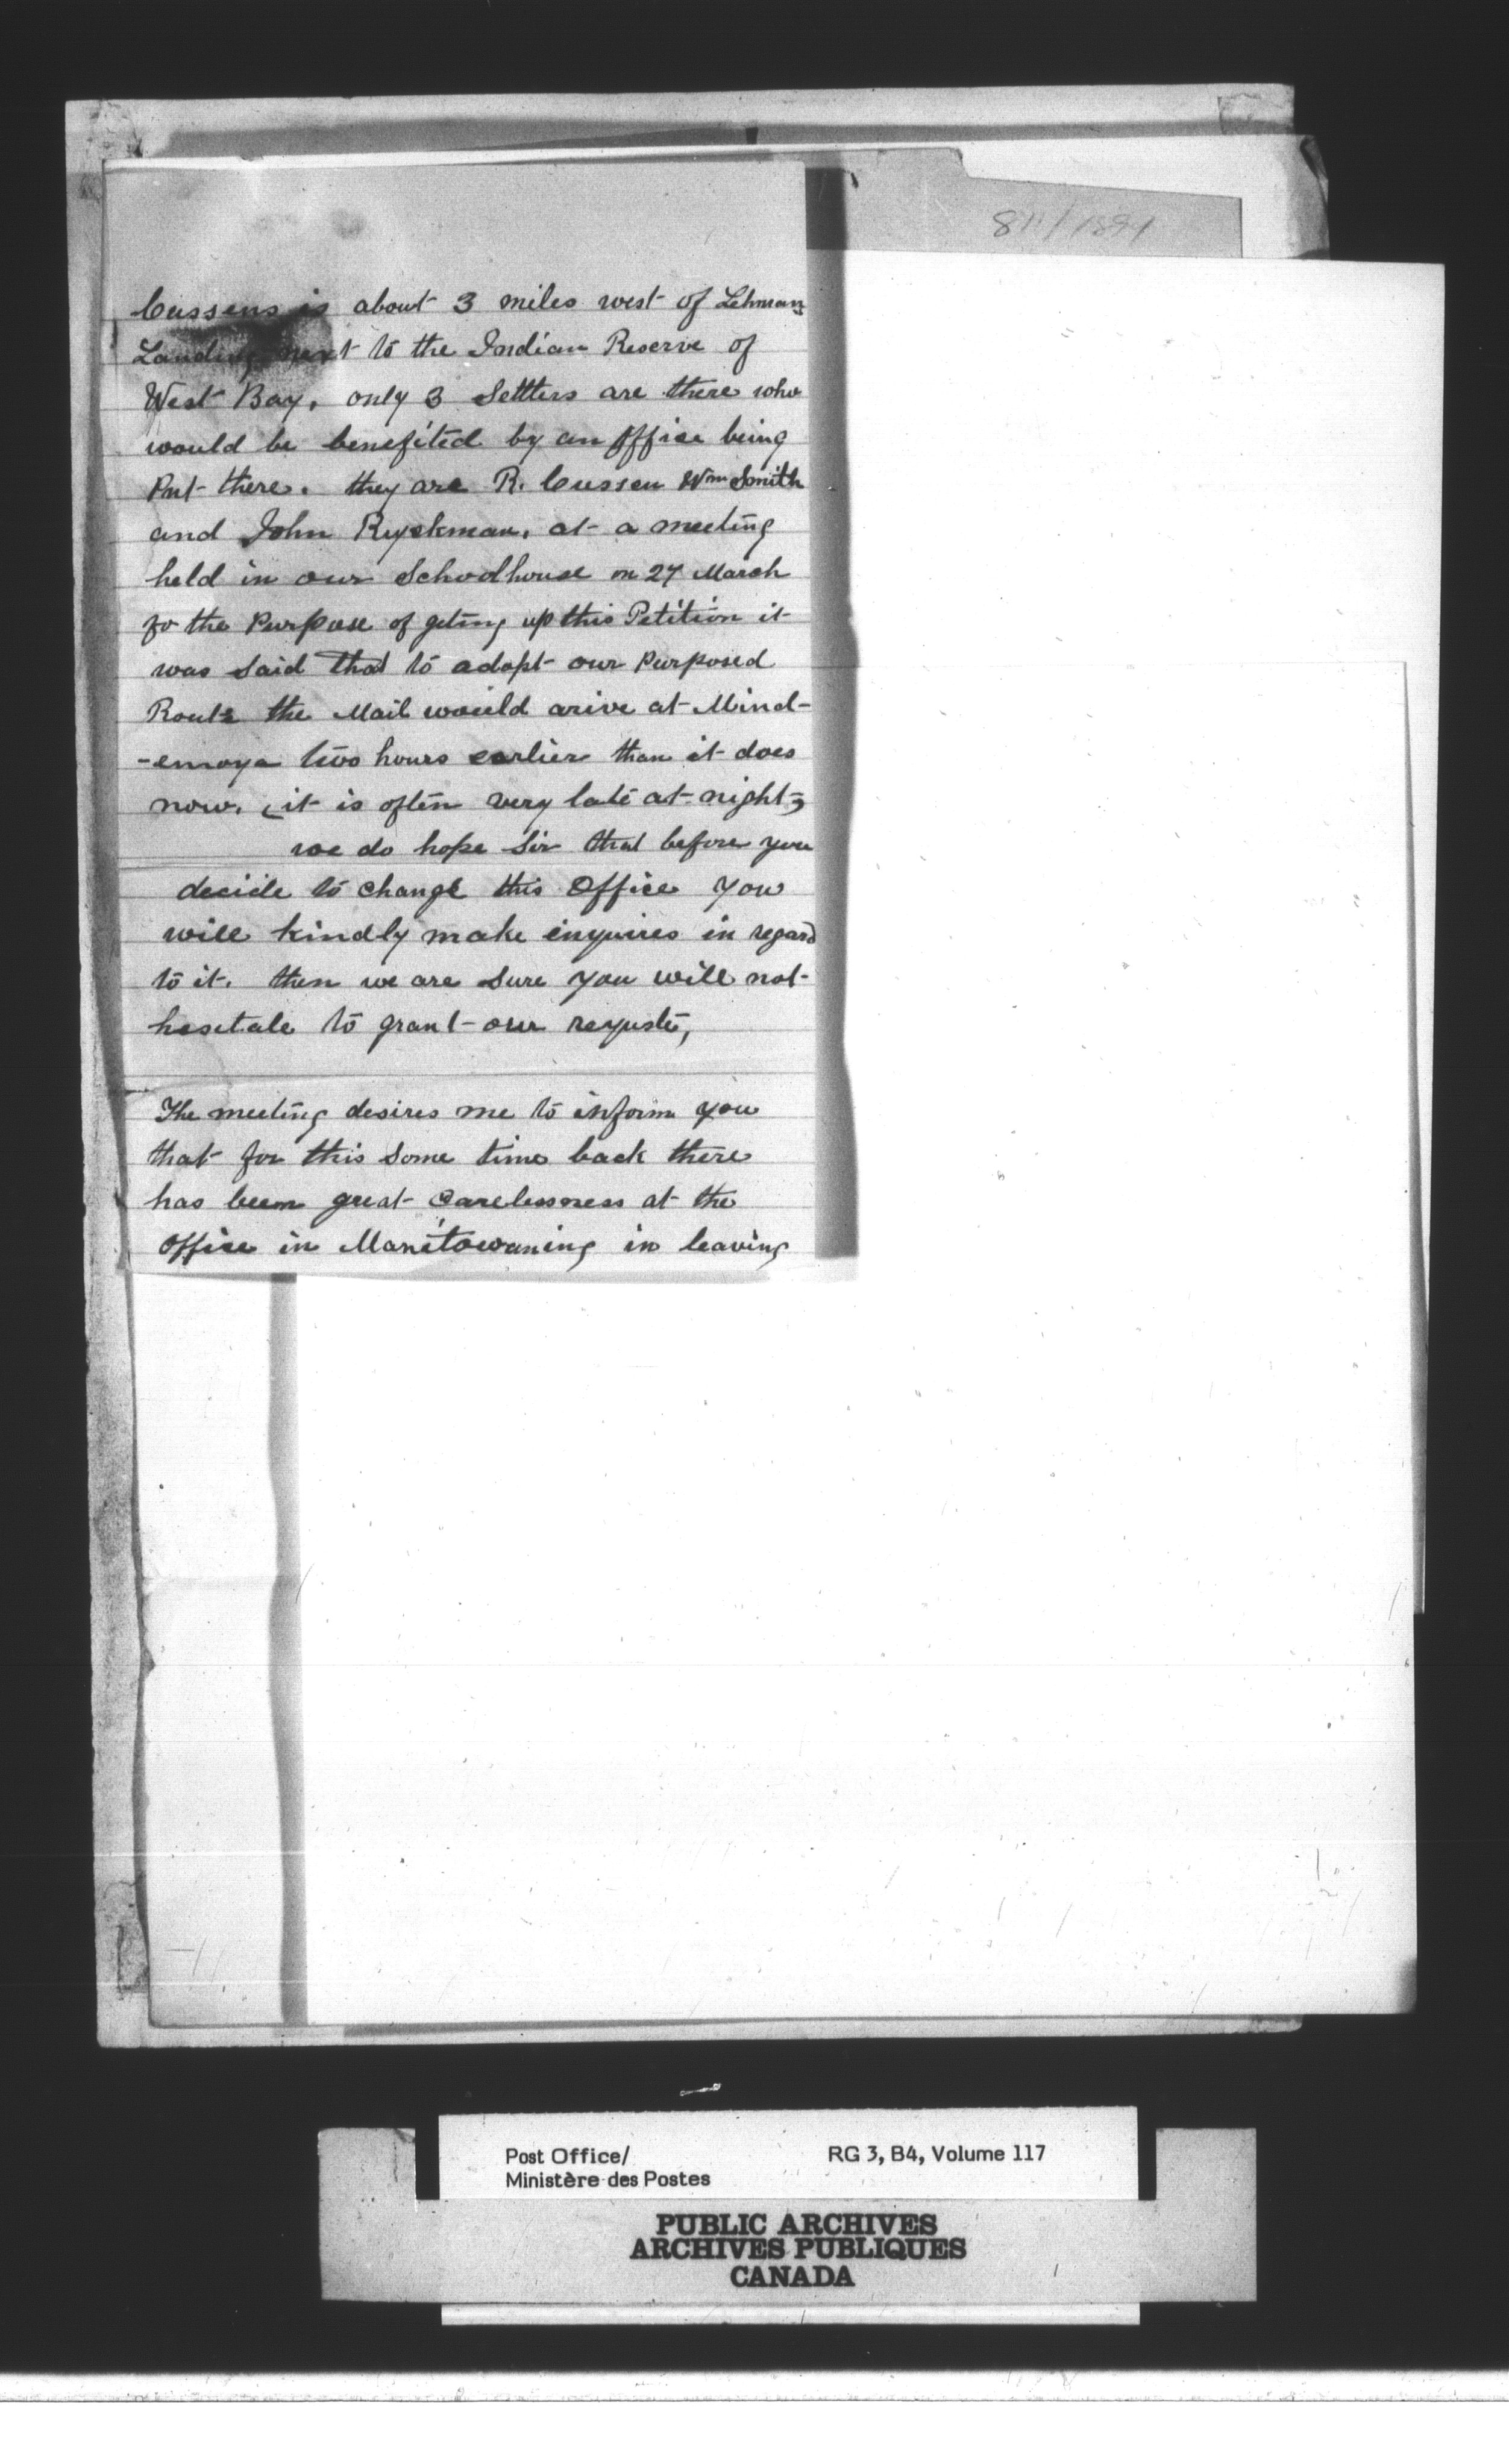 Cussens is about 3 miles west of Lehmans
Landing next to the Indian Reserve of
West Bay, only 3 Settlers are there who
would be benefited by an Office being
Put there. they are R. Cussen Wm Smith
and John Ryckman, at a meeting
held in our Schoolhouse on 27 March
fo the Purpose of geting up this Petition it
was said that to adopt our Purposed
Route the Mail would arive at Mind-
-emoya two hours earlier than it does
now. (it is often very late at night)
we do hope Sir that before you
decide to change this Office you
will kindly make enquires in regard
to it. then we are sure you will not
hesitate to grant our requste,
The meeting desires me to inform you
that for this some time back there
has been great Carelessness at the
Office in Manitowaning in leaving
Post Office/
Ministère des Postes
RG 3, B4, Volume 117
PUBLIC ARCHIVES
ARCHIVES PUBLIQUES
CANADA